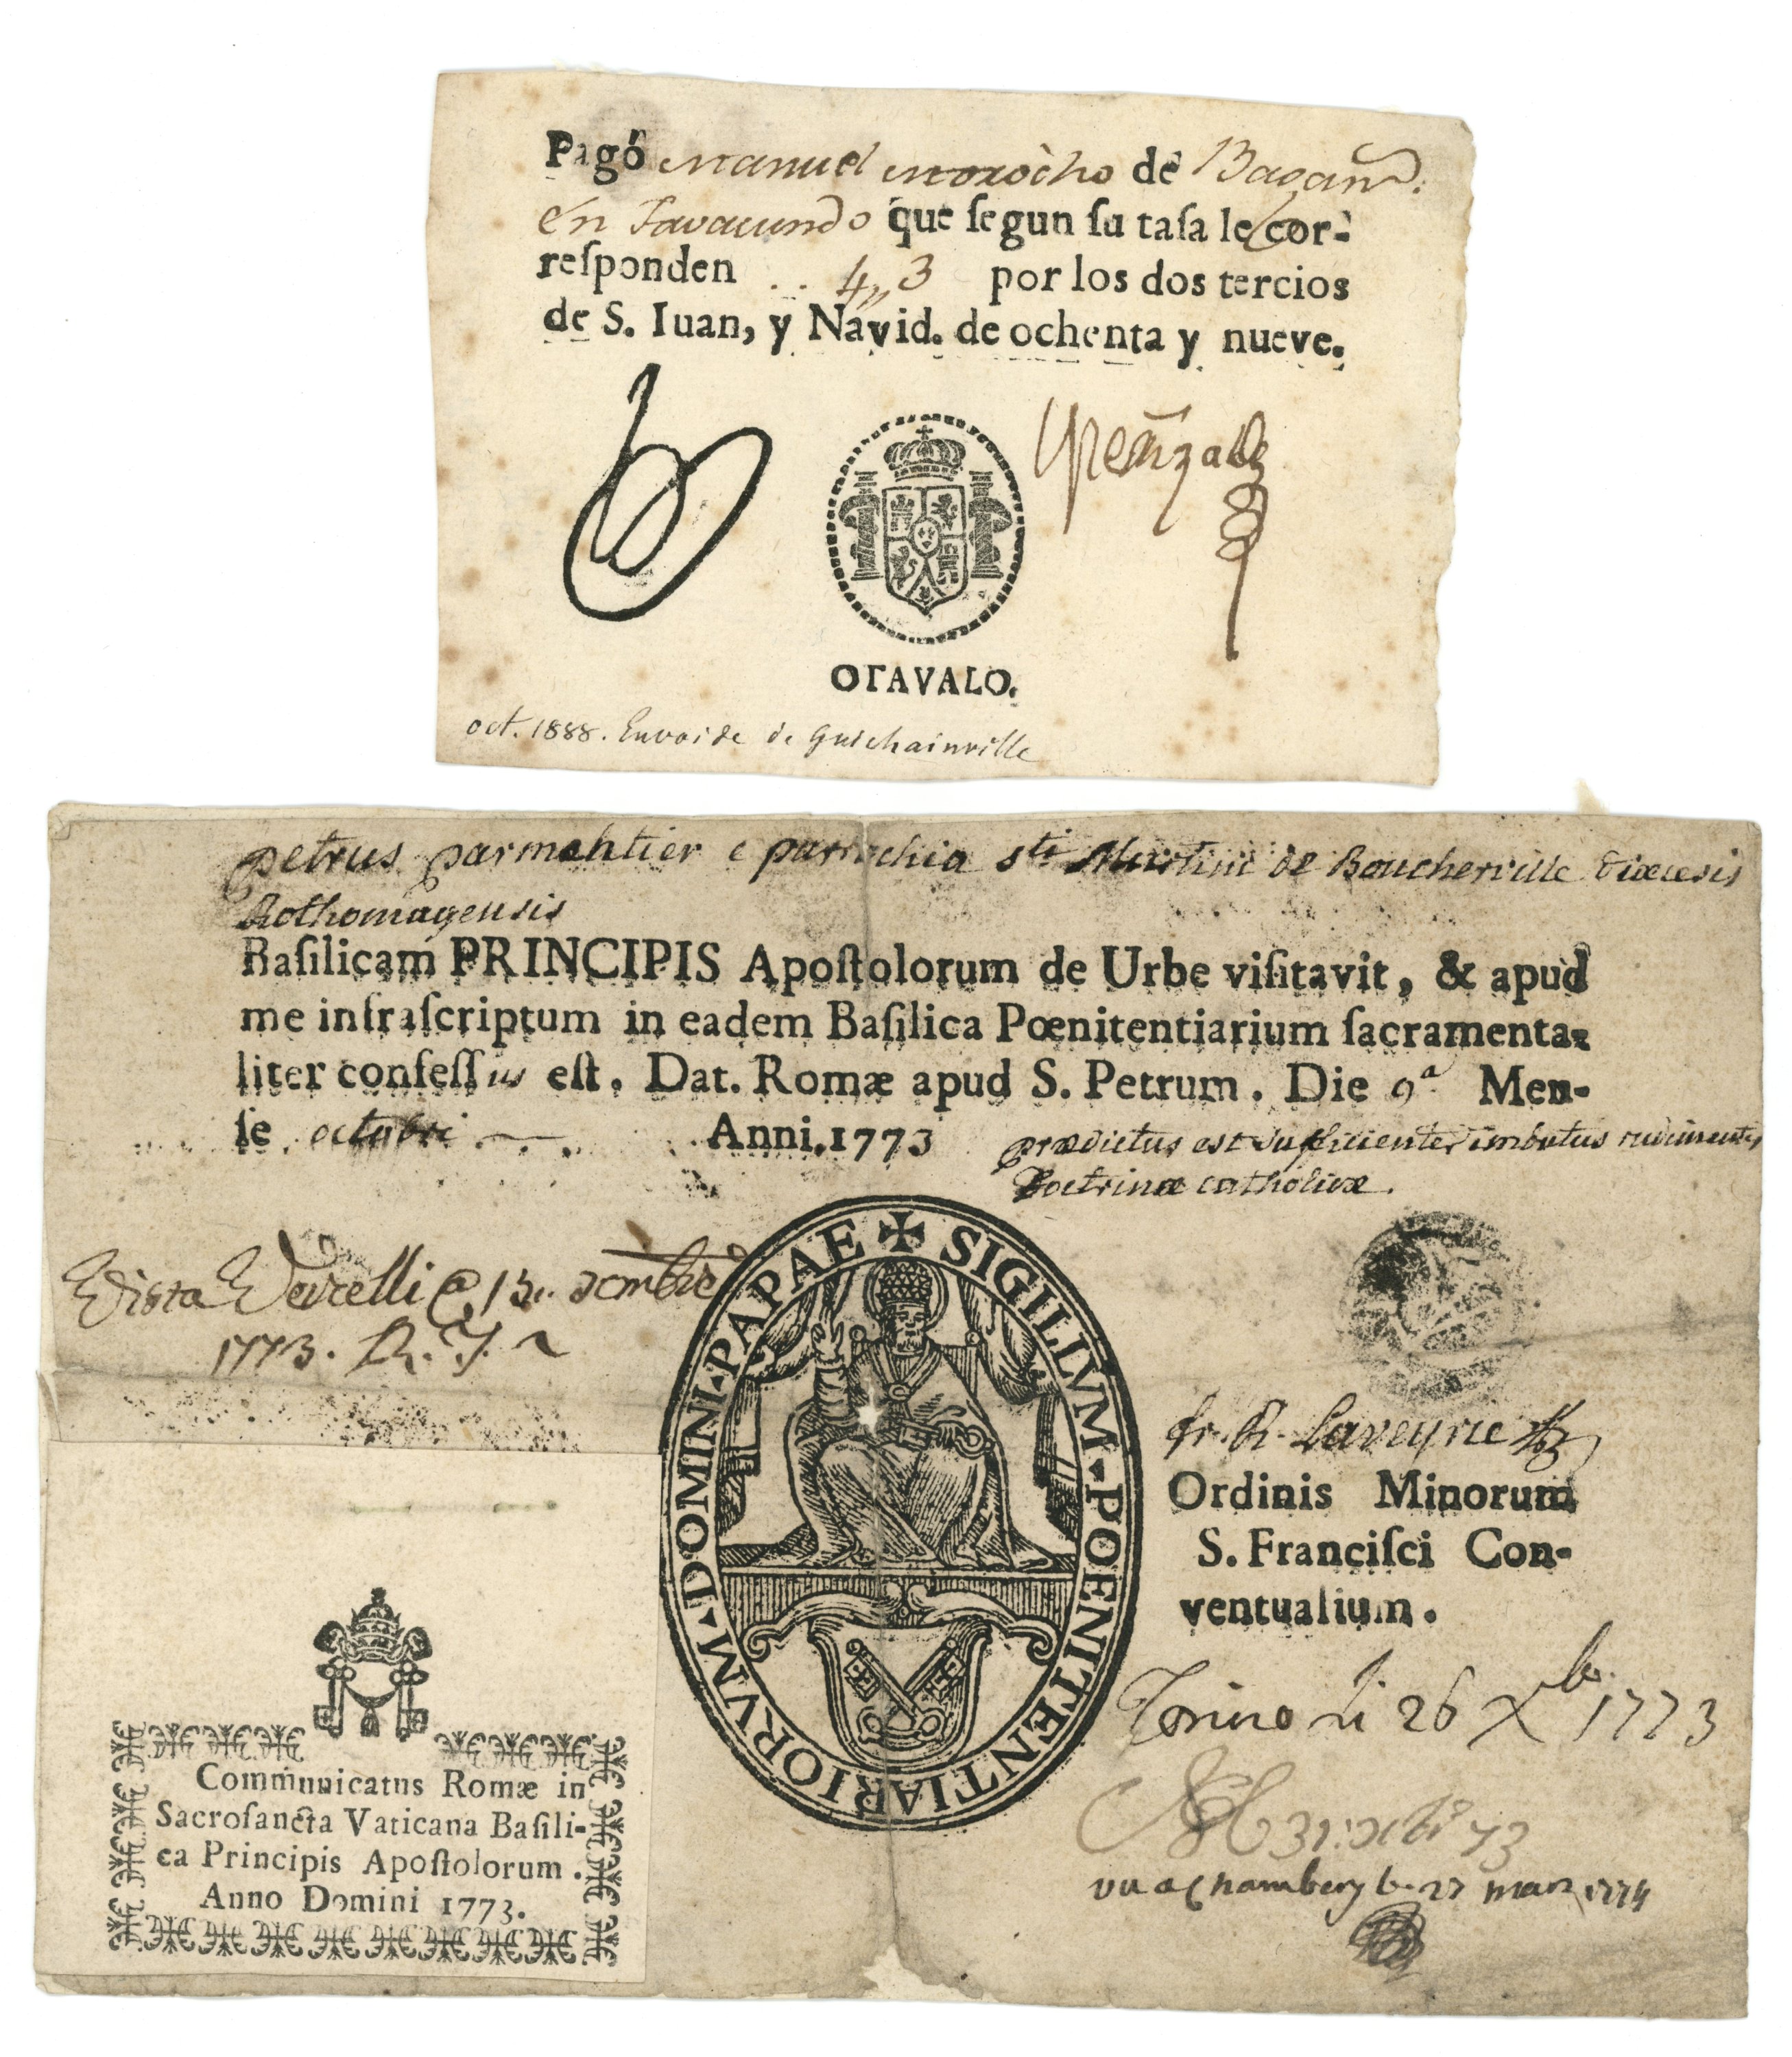 Pagó Manuel Morocho de
en que segun ſu taſa le cor-
reſponden .. 4,, 3 por los dos tercios
de S. Iuan, y Navid. de ochenta y nueve.
OTAVALO.
oct. 1888. Envoi de de Guichainville
petrus parmentier e parrochia sti Martini de Boucherville diœcesis
Rothomagensis
Baſilicam PRINCIPIS Apoſtolorum de Urbe viſitavit, & apud
me infraſcriptum in eadem Baſilica Pœnitentiarium ſacramenta-
liter confeſſus eſt. Dat. Romæ apud S. Petrum. Die 9a Men-
ſe octobri Anni.1773
prædictus est sufficienter imbutus rudimentis
Doctrinæ catholicæ.
Vista 13..
1773.
✠ SIGILLVM ▴ POENITENTIARIORVM ▴ DOMINI ▴ PAPAE
fr. R. Laveyrie
Ordinis Minorum
S. Franciſci Con-
ventualium.
Torino li 26 Xbr 1773
31
vu a Chambery le 27 mars 1774
Communicatus Romæ in
Sacroſancta Vaticana Baſili-
ca Principis Apoſtolorum.
Anno Domini 1773.